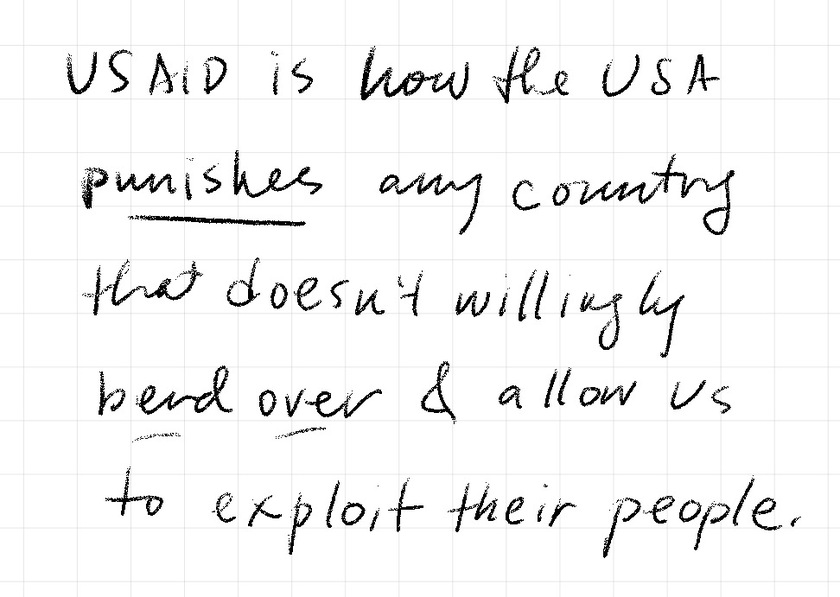 USAID is how the USA
punishes any country
that doesn't willingly
bend over & allow us
to exploit their people.